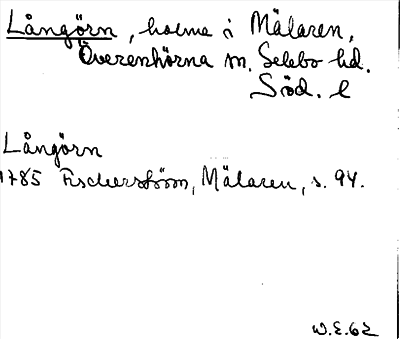 Långörn, holme i Mälaren,
Överenhörna sn. Selebo hd.
Söd. l
Långörn
1785 Fischerström, Mälaren, s. 94.
W.E.62